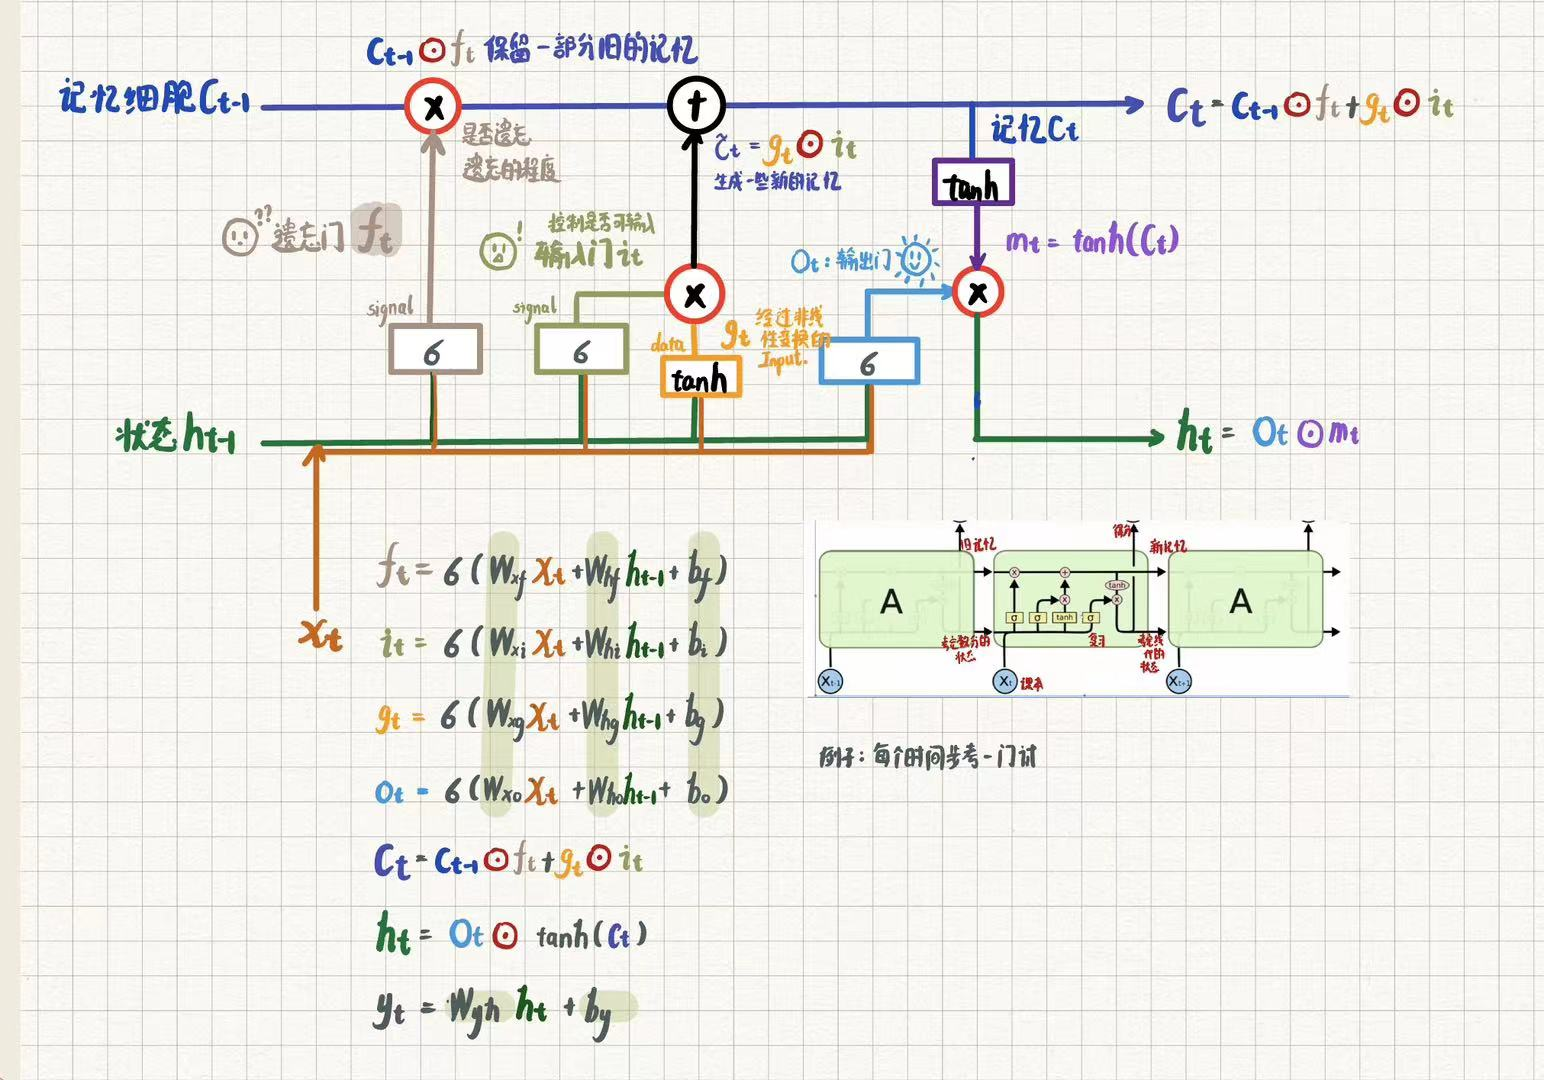 Ct-1 ⊙ ft 保留一部分旧的记忆
记忆细胞Ct-1
x
+
Ct = Ct-1 ⊙ ft + gt ⊙ it
是否遗忘
遗忘的程度
c̃t = gt ⊙ it
生成一些新的记忆
记忆Ct
tanh
?? 遗忘门 ft
控制是否可输入
! 输入门 it
Ot: 输出门
mt = tanh(Ct)
signal
6
signal
6
x
data
gt 经过非线
性变换的
Input.
tanh
6
x
状态 ht-1
ht = Ot ⊙ mt
xt
ft = 6 ( Wxf xt + Whf ht-1 + bf )
it = 6 ( Wxi xt + Whi ht-1 + bi )
gt = 6 ( Wxg xt + Whg ht-1 + bg )
Ot = 6 ( Wxo xt + Who ht-1 + bo )
Ct = Ct-1 ⊙ ft + gt ⊙ it
ht = Ot ⊙ tanh(Ct)
yt = Wyh ht + by
旧记忆
得分
新记忆
A
x
+
tanh
x
x
σ
σ
tanh
σ
A
状态
复习
状态
Xt-1
Xt
课本
Xt+1
例子: 每个时间步考一门试